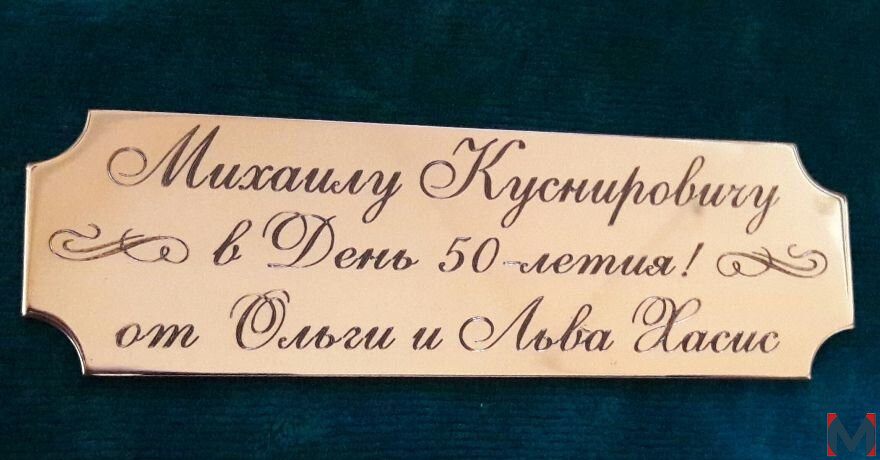 Михаилу Куснировичу
в День 50-летия!
от Ольги и Льва Хасис
M